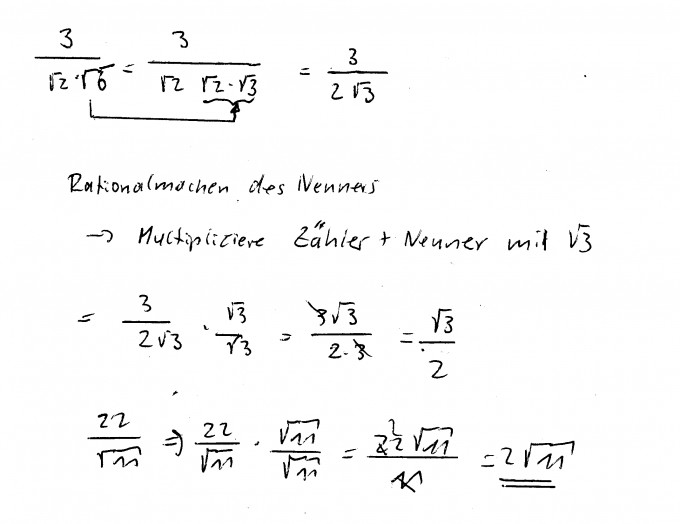 3/(√2·√6) = 3/(√2 √2·√3) = 3/(2√3)
Rationalmachen des Nenners
→ Multipliziere Zähler + Nenner mit √3
= 3/(2√3) · √3/√3 = 3√3/(2·3) = √3/2
22/√11 ⇒ 22/√11 · √11/√11 = 22 2 √11/11 = 2√11